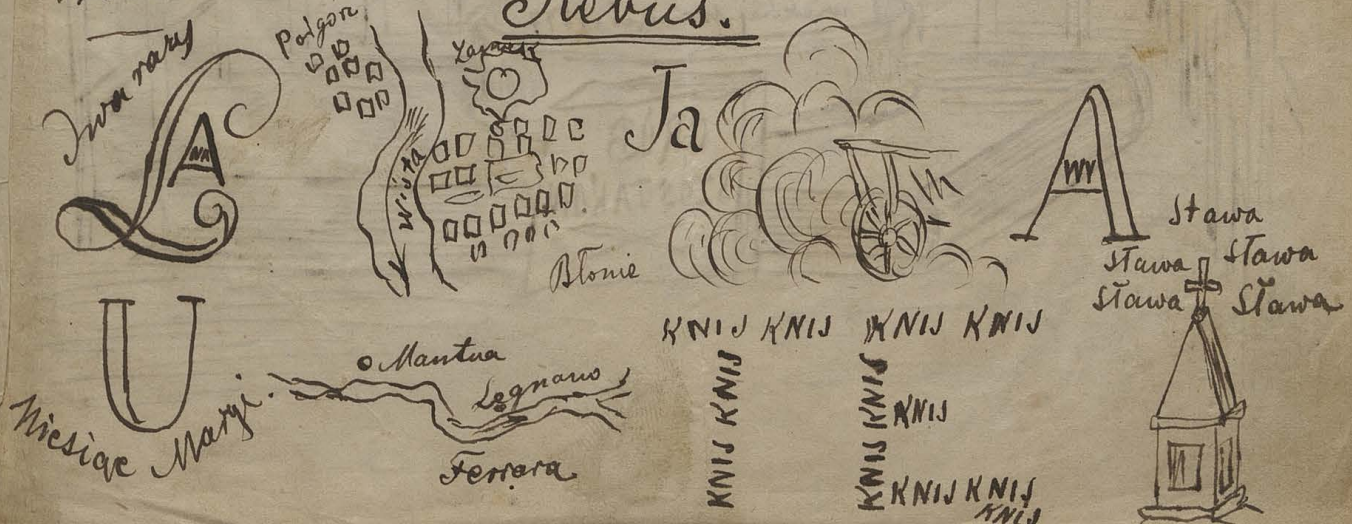 Rebus.
Dwa razy
Ł A NA
Wisła
Błonie
Ja
A WY
Sława
Sława Sława
Sława Sława
U
Miesiąc Maryi.
Mantua
Legnano
Ferrara
KNIJ KNIJ KNIJ KNIJ
KNIJ KNIJ
KNIJ KNIJ
KNIJ
KNIJ KNIJ
KNIJ